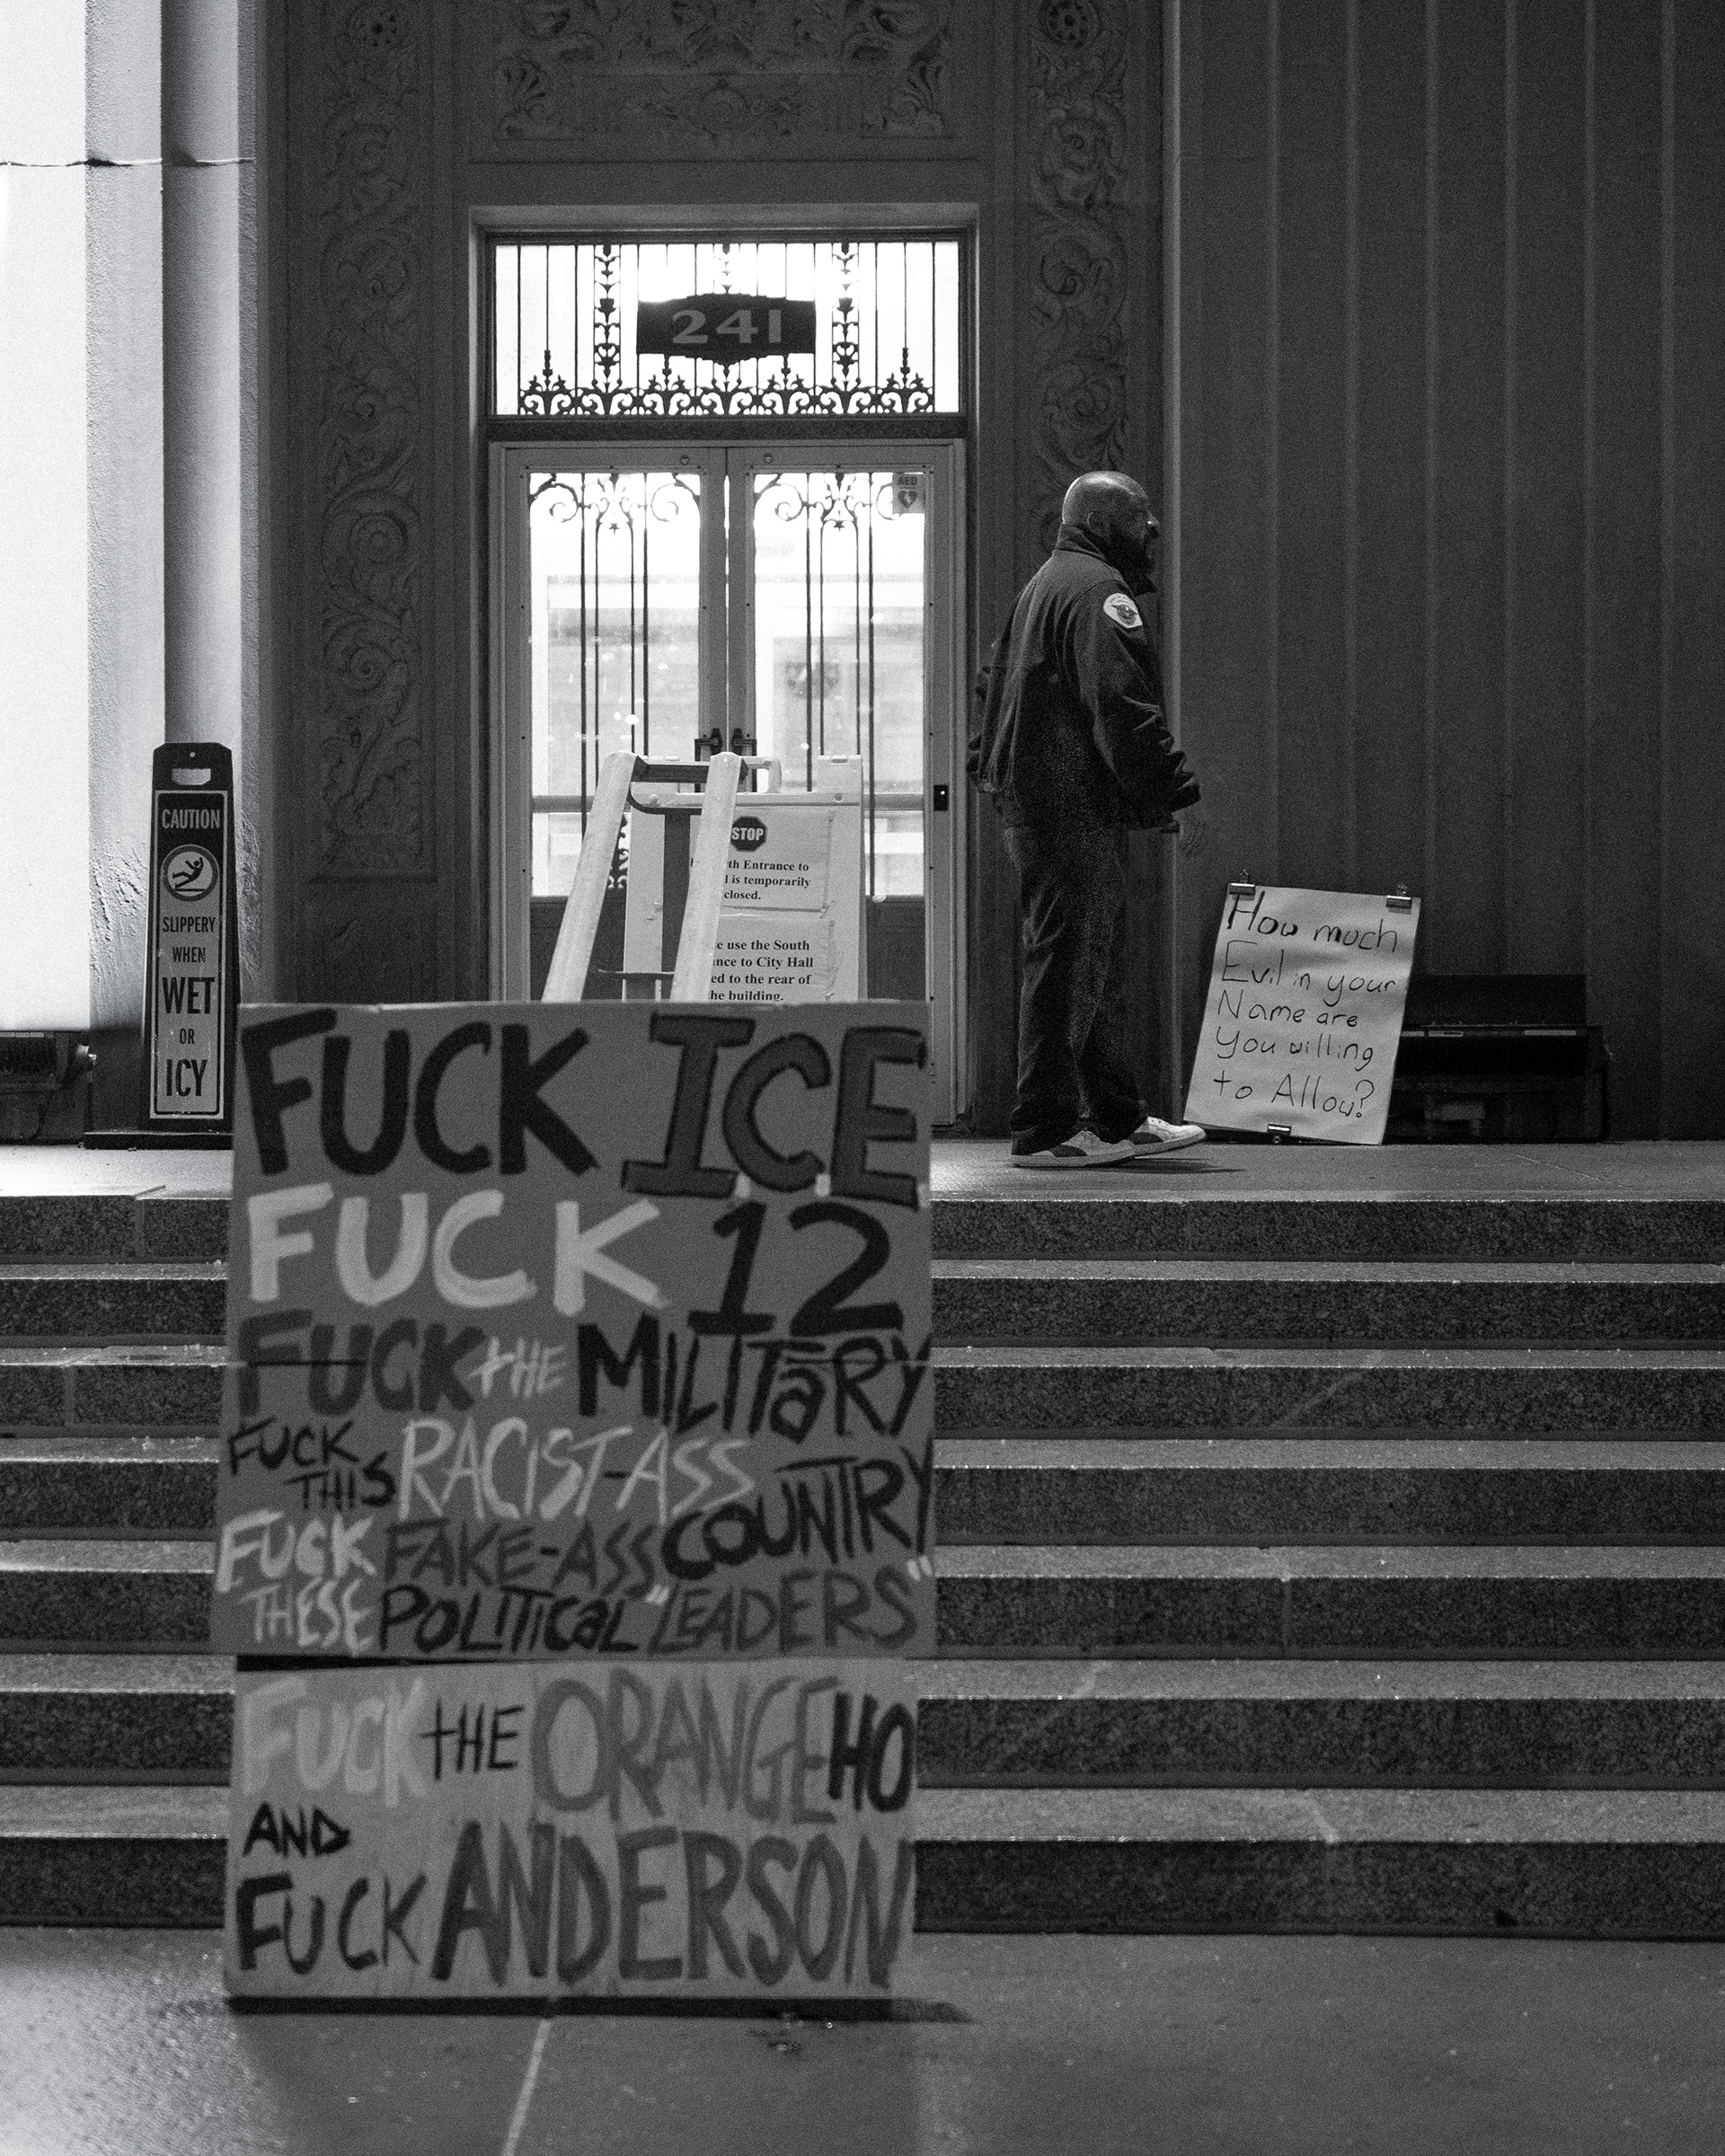 241
AED
CAUTION
SLIPPERY
WHEN
WET
OR
ICY
STOP
Entrance to
is temporarily
closed.
use the South
to City Hall
to the rear of
building.
How much
Evil in your
Name are
you willing
to Allow?
FUCK ICE
FUCK 12
FUCK THE MILITaRY
FUCK THIS RACIST-ASS COUNTRY
FUCK THESE FAKE-ASS
POLITICaL "LEADERS"
FUCK THE ORANGE HO
AND
FUCK ANDERSON